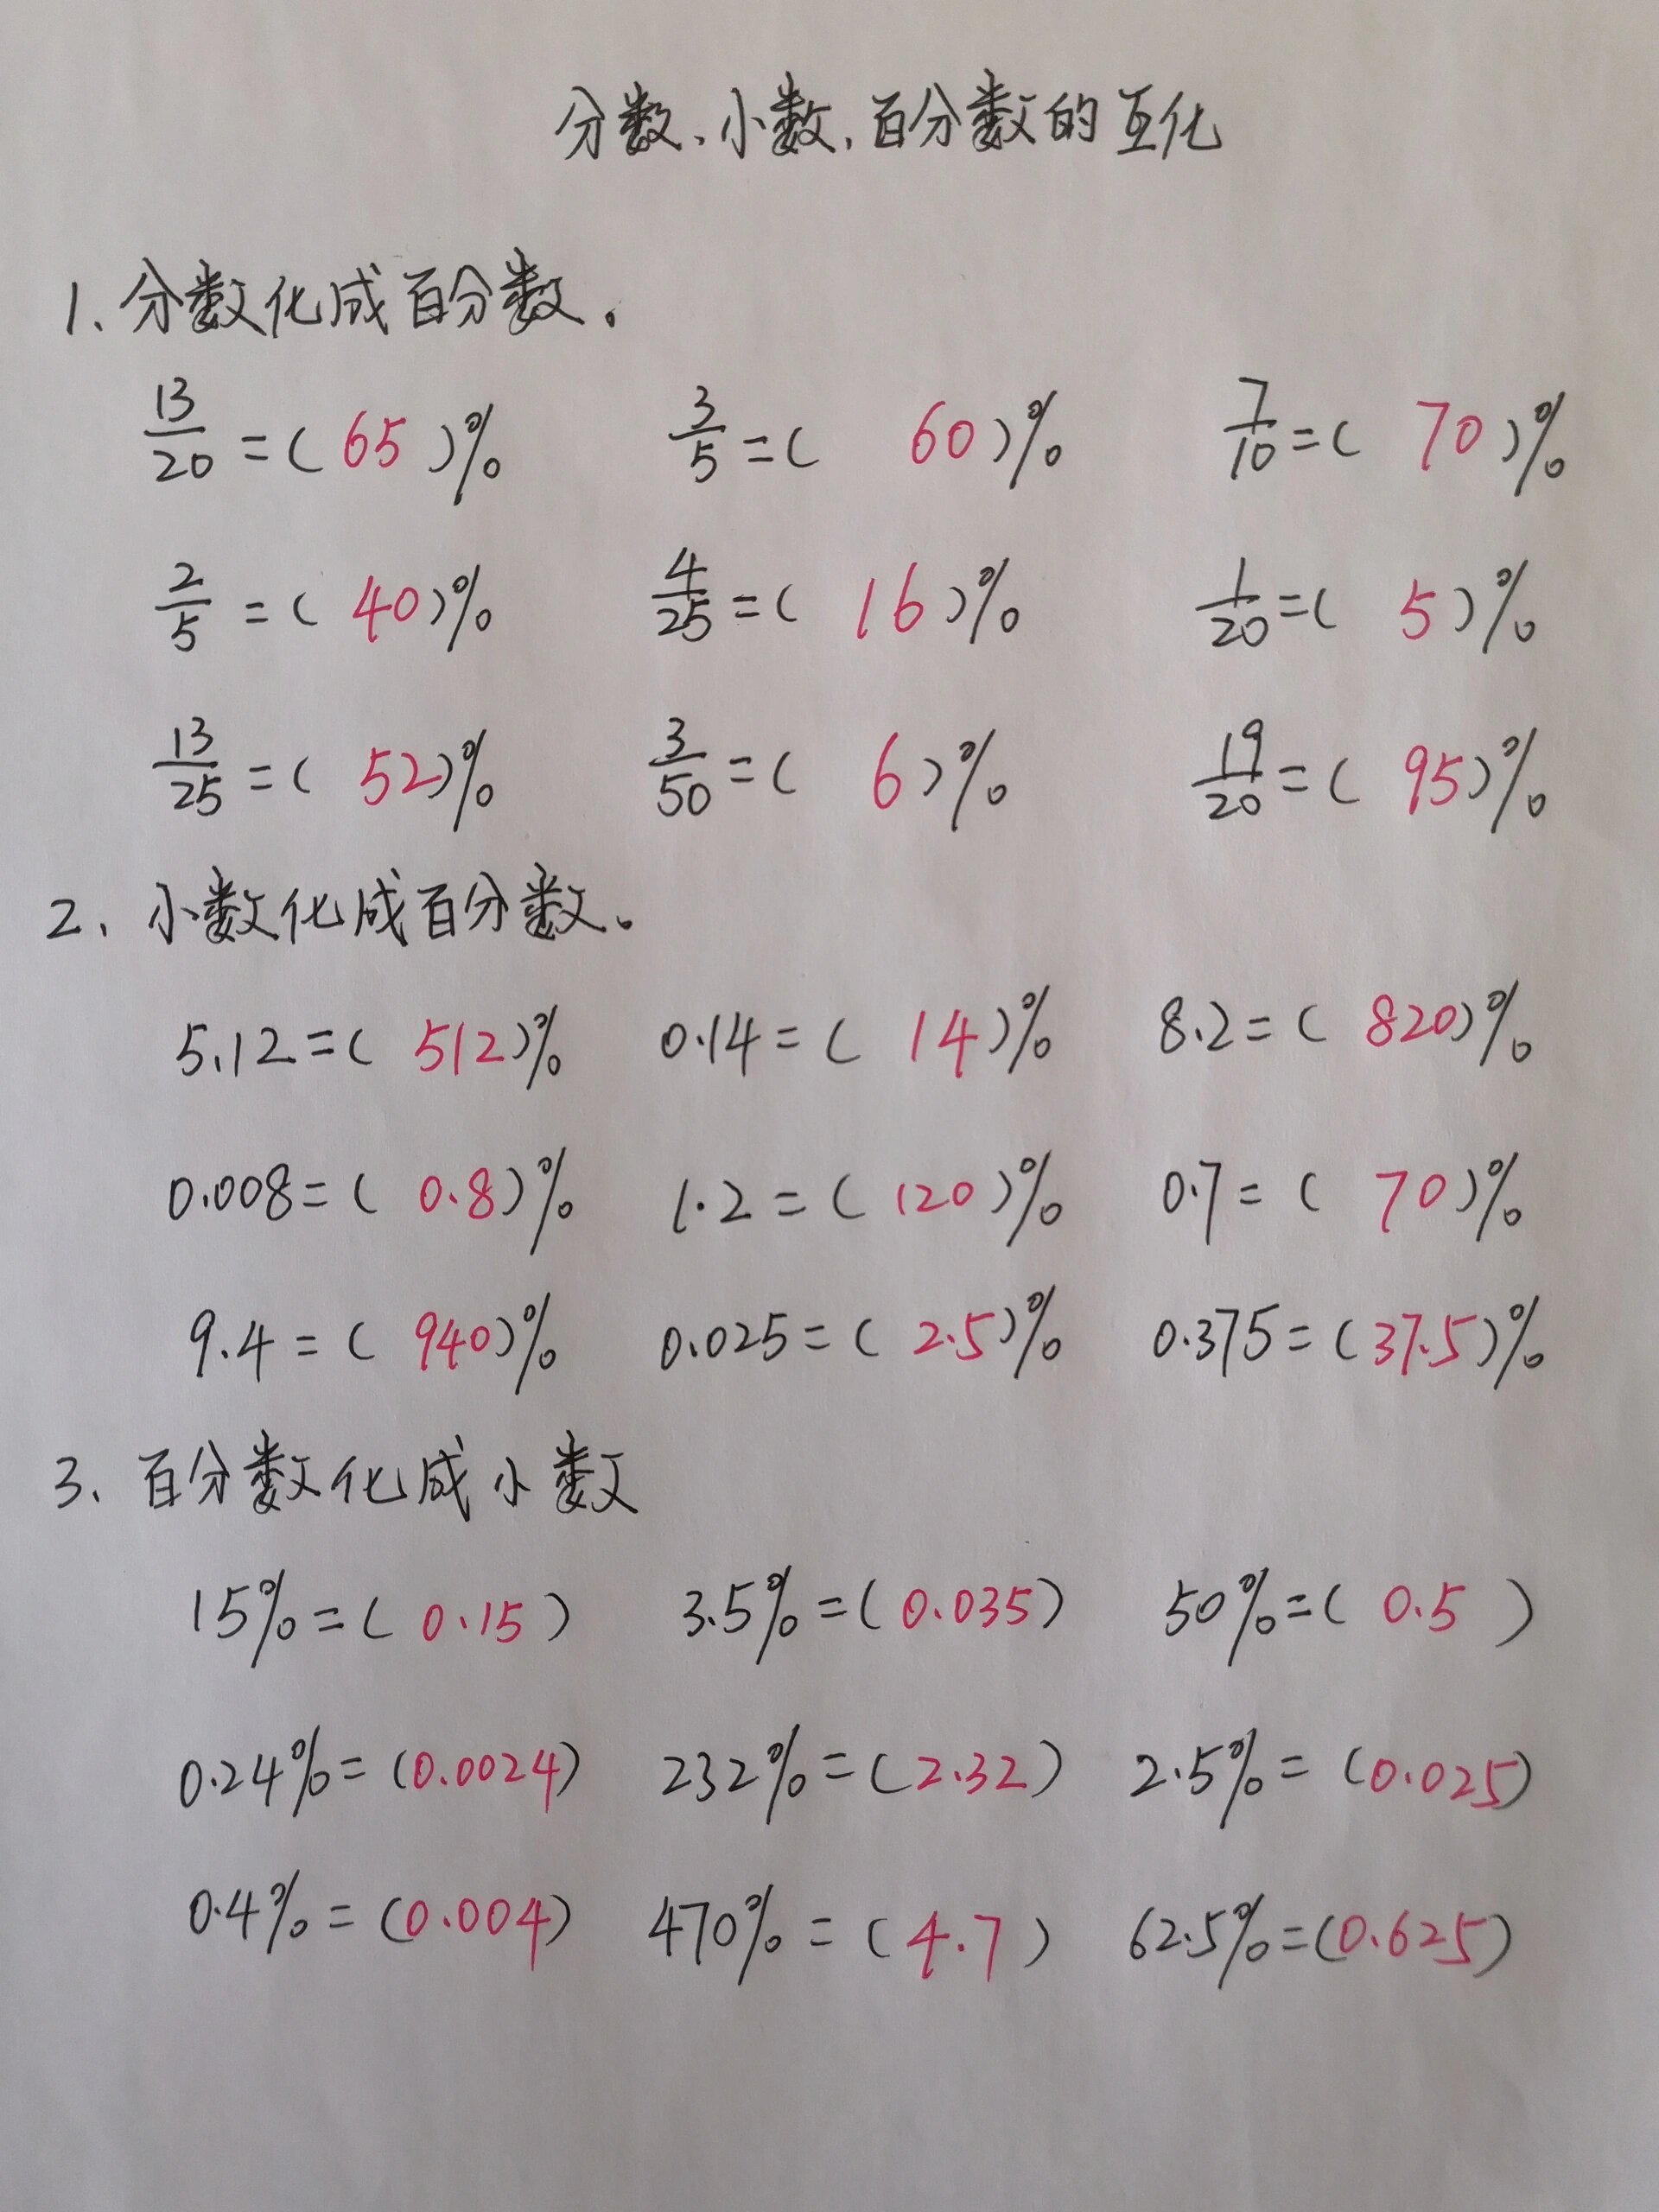 分数、小数、百分数的互化
1、分数化成百分数。
13/20=(65)% 3/5=(60)% 7/10=(70)%
2/5=(40)% 4/25=(16)% 1/20=(5)%
13/25=(52)% 3/50=(6)% 19/20=(95)%
2、小数化成百分数。
5.12=(512)% 0.14=(14)% 8.2=(820)%
0.008=(0.8)% 1.2=(120)% 0.7=(70)%
9.4=(940)% 0.025=(2.5)% 0.375=(37.5)%
3、百分数化成小数
15%=(0.15) 3.5%=(0.035) 50%=(0.5)
0.24%=(0.0024) 232%=(2.32) 2.5%=(0.025)
0.4%=(0.004) 470%=(4.7) 62.5%=(0.625)